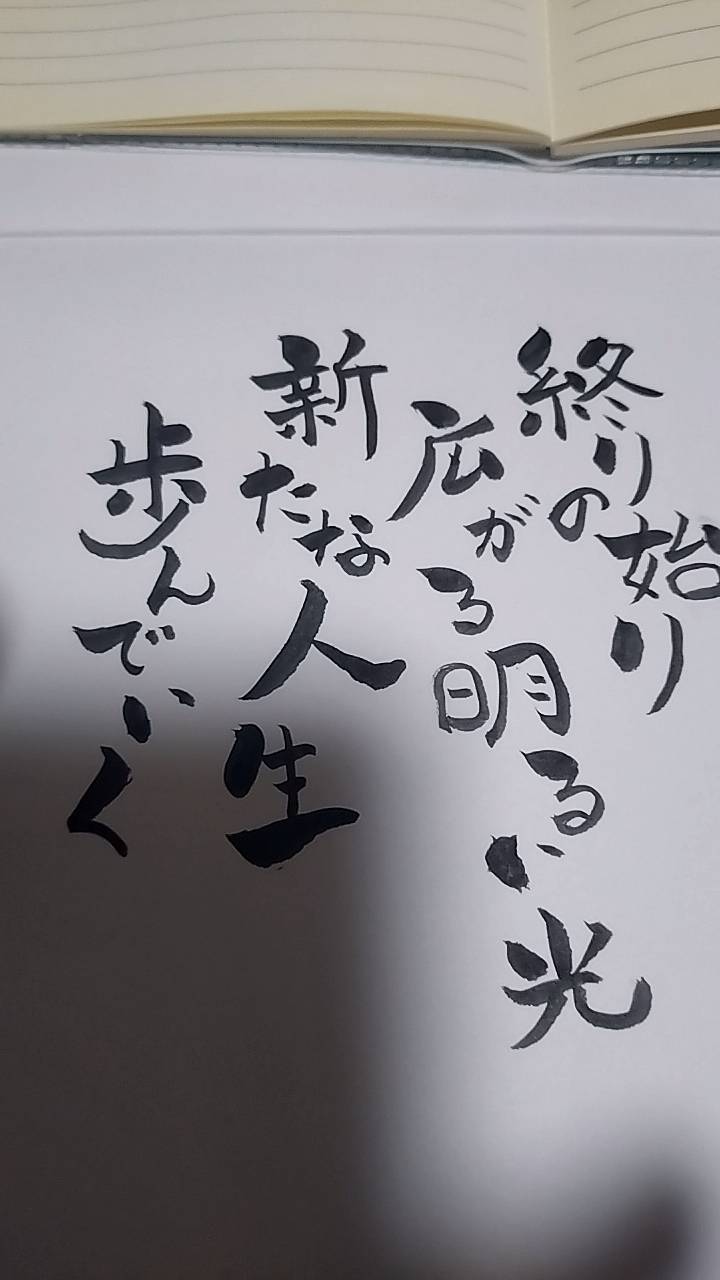 終りの始り
広がる明るい光
新たな人生
歩んでいく